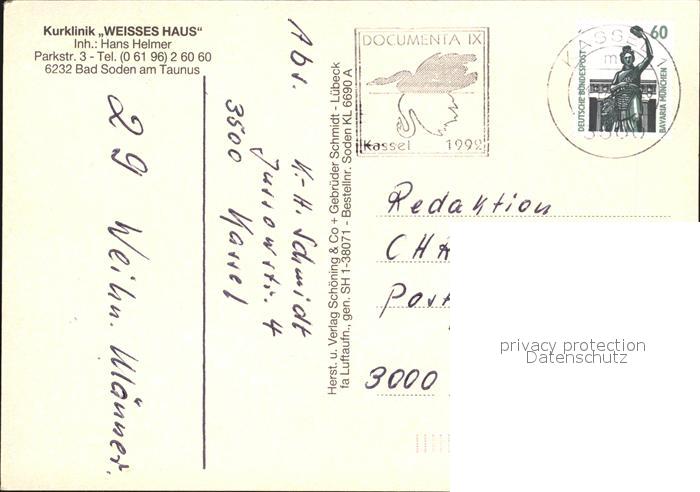 Kurklinik „WEISSES HAUS"
Inh.: Hans Helmer
Parkstr. 3 - Tel. (0 61 96) 2 60 60
6232 Bad Soden am Taunus
29 Weihn. Männer.
Abs. K.-H. Schmidt
4
3500 Kassel
Herst. u. Verlag Schöning & Co + Gebrüder Schmidt - Lübeck
fa Luftaufn., gen. SH 1-38071 - Bestellnr. Soden KL 6690 A
DOCUMENTA IX
Kassel 1992
KASSEL
3500
60
DEUTSCHE BUNDESPOST
BAVARIA MÜNCHEN
Redaktion
CHA
Post
3000
privacy protection
Datenschutz